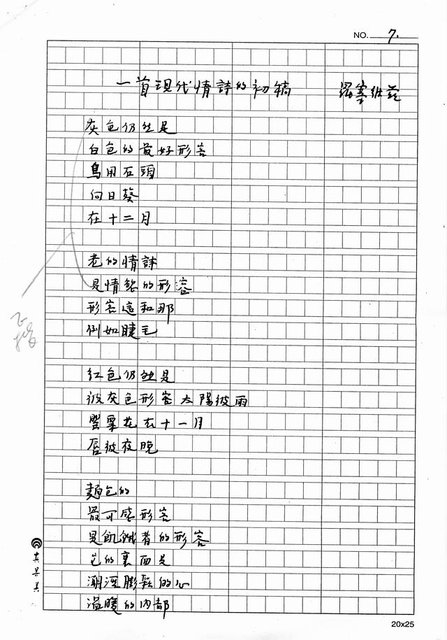 NO. 7.
一首現代情詩的初稿 羅塞維茲
灰色仍然是
白色的最好形容
鳥用石頭
向日葵
在十二月
老的情詩
是情慾的形容
形容這和那
例如睫毛
紅色仍然是
被灰色形容太陽被雨
罌粟花在十一月
唇被夜晚
麵包的
最可感形容
是飢餓者的形容
它的裏面是
潮溼膨鬆的心
溫暖的內部
20x25